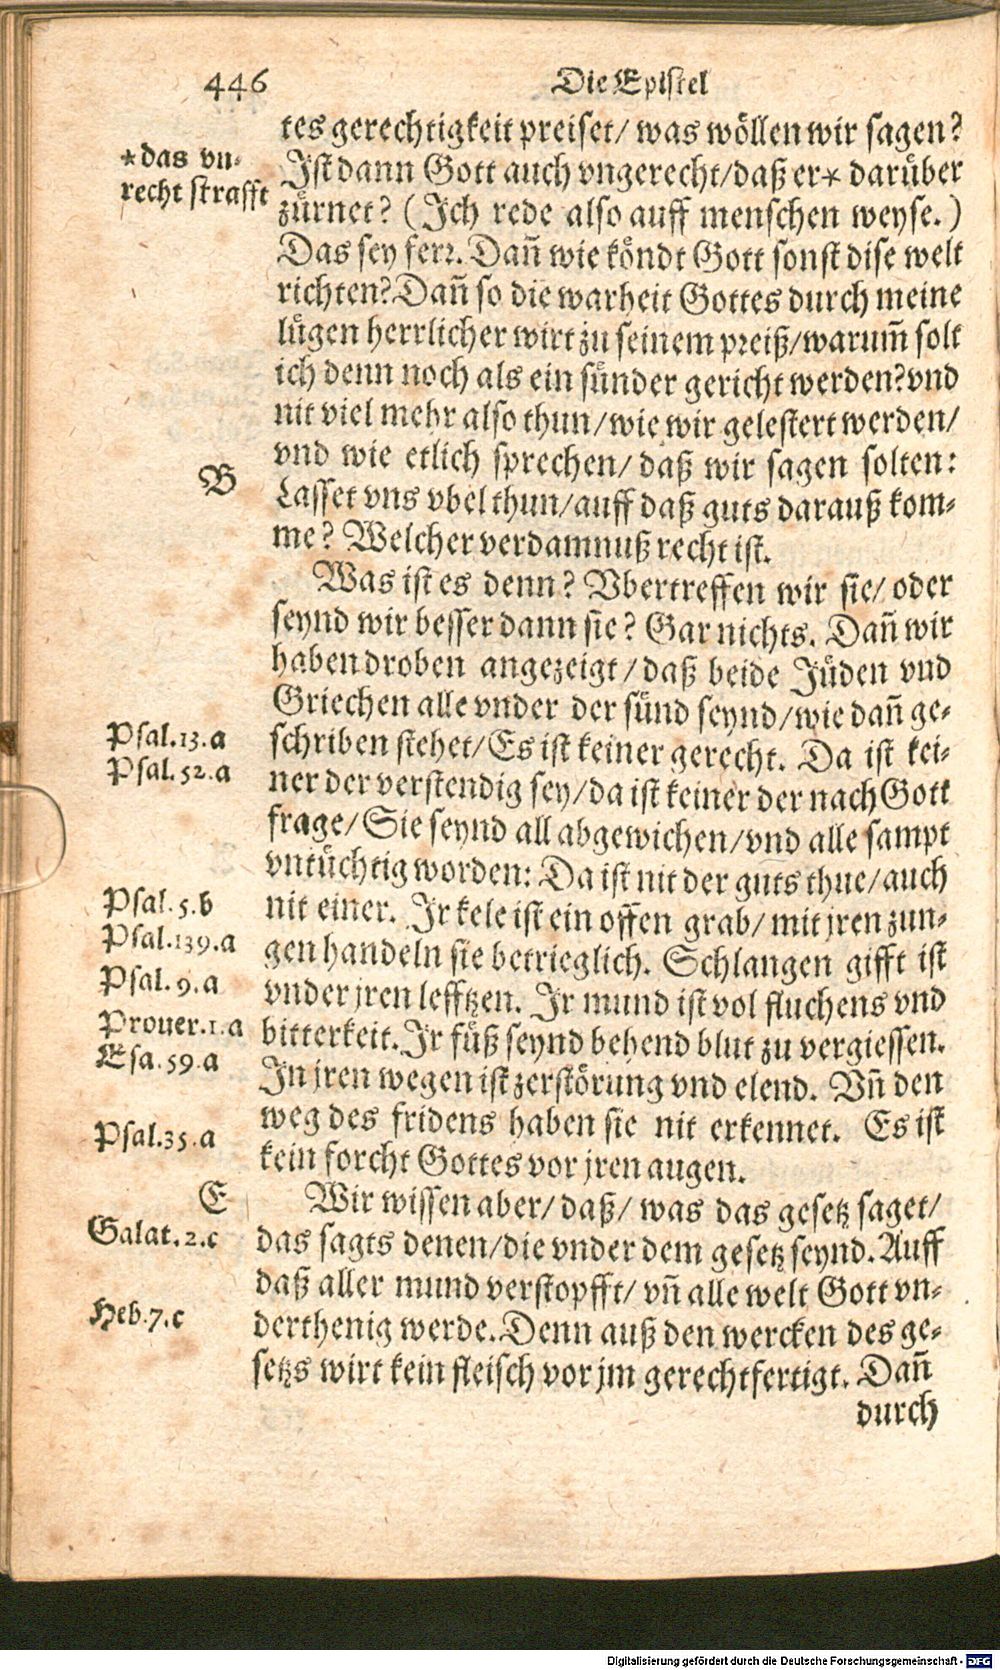 446
Die Epistel
tes gerechtigkeit preiset/ was wöllen wir sagen?
*das vn-
recht strafft
Ist dann Gott auch vngerecht/daß er* darüber
zürnet? (Ich rede also auff menschen weyse.)
Das sey ferꝛ. Dañ wie köndt Gott sonst dise welt
richten? Dañ so die warheit Gottes durch meine
lügen herrlicher wirt zu seinem preiß/warum̃ solt
ich denn noch als ein sünder gericht werden? vnd
nit viel mehr also thun/wie wir gelestert werden/
vnd wie etlich sprechen/ daß wir sagen solten:
B
Lasset vns vbel thun/auff daß guts darauß kom-
me? Welcher verdamnuß recht ist.
Was ist es denn? Vbertreffen wir sie/ oder
seynd wir besser dann sie? Gar nichts. Dañ wir
haben droben angezeigt/daß beide Jüden vnd
Griechen alle vnder der sünd seynd/wie dañ ge-
Psal.13.a
schriben stehet/Es ist keiner gerecht. Da ist kei-
Psal.52.a
ner der verstendig sey/da ist keiner der nach Gott
frage/Sie seynd all abgewichen/vnd alle sampt
vntüchtig worden: Da ist nit der guts thue/auch
Psal.5.b
nit einer. Ir kele ist ein offen grab/mit jren zun-
Psal.139.a
gen handeln sie betrieglich. Schlangen gifft ist
Psal.9.a
vnder jren lefftzen. Ir mund ist vol fluchens vnd
Prouer.1.a
bitterkeit. Ir füß seynd behend blut zu vergiessen.
Esa.59.a
In jren wegen ist zerstörung vnd elend. Vñ den
weg des fridens haben sie nit erkennet. Es ist
Psal.35.a
kein forcht Gottes vor jren augen.
E
Wir wissen aber/ daß/ was das gesetz saget/
Galat.2.c
das sagts denen/die vnder dem gesetz seynd. Auff
daß aller mund verstopfft/ vñ alle welt Gott vn-
Heb.7.c
derthenig werde. Denn auß den wercken des ge-
setzs wirt kein fleisch vor jm gerechtfertigt. Dañ
durch
Digitalisierung gefördert durch die Deutsche Forschungsgemeinschaft - DFG